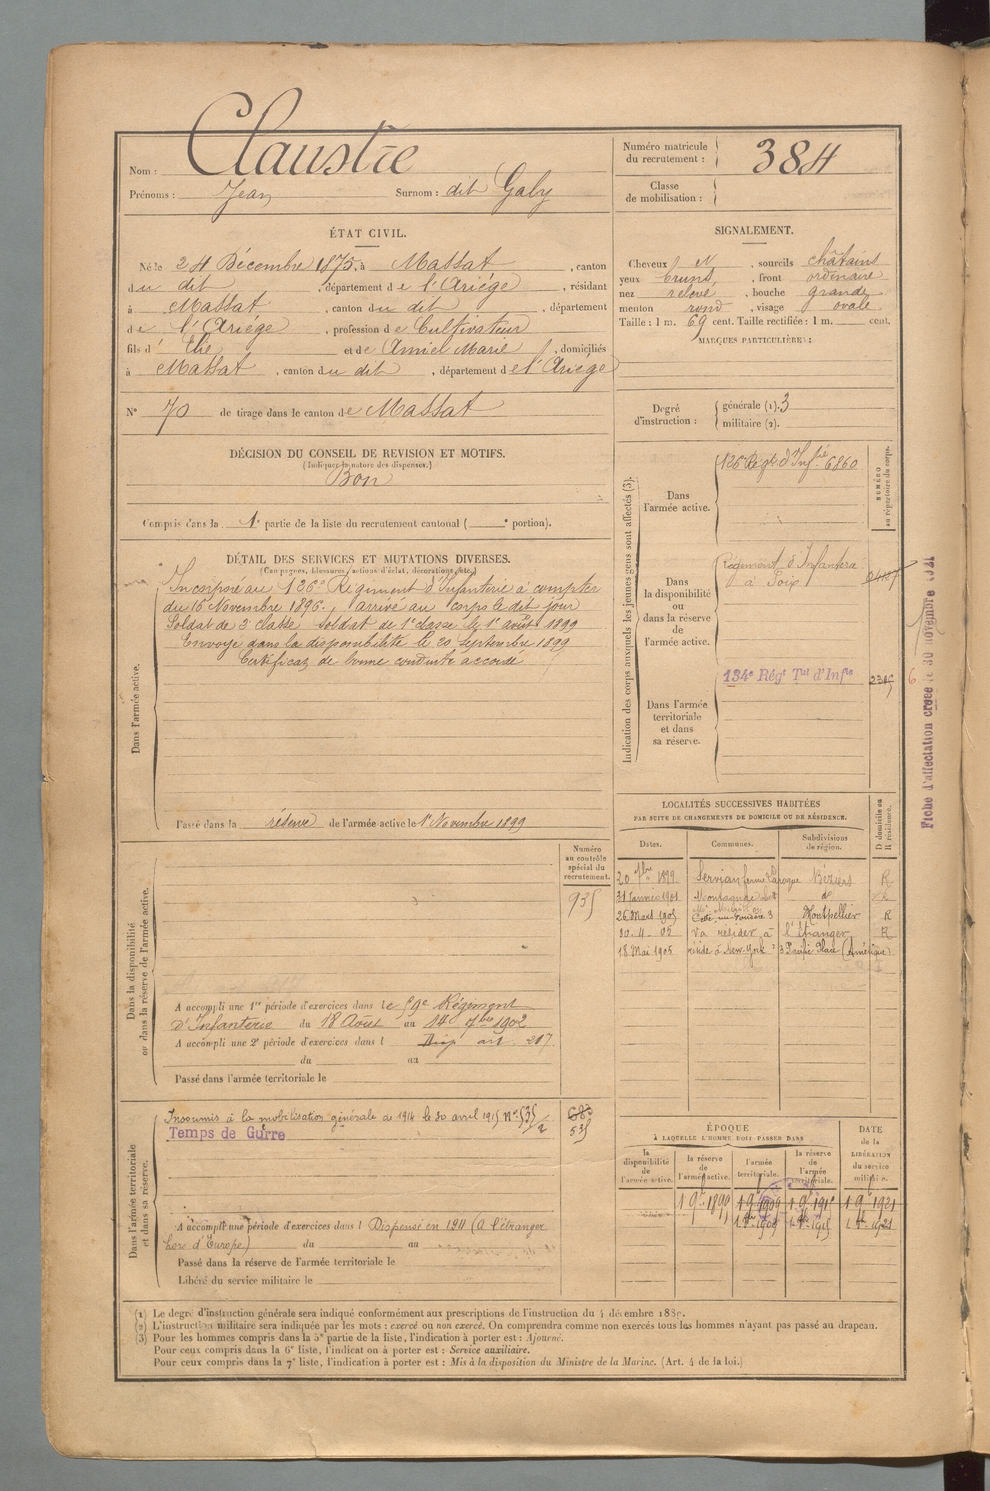 Nom : Claustre
Prénoms : Jean Surnom : dit Galy
Numéro matricule du recrutement : 384
Classe de mobilisation :
ÉTAT CIVIL.
Né le 24 Décembre 1875, à Massat, canton
du dit, département de l'Ariége, résidant
à Massat, canton du dit, département
de l'Ariége, profession de Cultivateur
fils d' Elie et de Amiel Marie, domiciliés
à Massat, canton du dit, département de l'Ariege
N° 70 de tirage dans le canton de Massat
SIGNALEMENT.
Cheveux et, sourcils châtains
yeux bruns, front ordinaire
nez relevé, bouche grande
menton rond, visage ovale
Taille : 1 m. 69 cent. Taille rectifiée : 1 m. cent.
MARQUES PARTICULIÈRES :
Degré d'instruction : générale (1). 3
militaire (2).
DÉCISION DU CONSEIL DE REVISION ET MOTIFS.
(Indiquer la nature des dispenses.)
Bon
Compris dans la 1e partie de la liste du recrutement cantonal ( e portion).
DÉTAIL DES SERVICES ET MUTATIONS DIVERSES.
(Campagnes, blessures, actions d'éclat, décorations, etc.)
Dans l'armée active.
Incorporé au 126e Régiment d'Infanterie à compter
du 16 Novembre 1896, arrivé au corps le dit jour
Soldat de 2e classe Soldat de 1e classe le 1er août 1899
Envoyé dans la disponibilité le 20 Septembre 1899
Certificat de bonne conduite accordé
Passé dans la réserve de l'armée active le 1er Novembre 1899
Indication des corps auxquels les jeunes gens sont affectés (3).
NUMÉRO au répertoire du corps.
Dans l'armée active.
126e Régt d'Infie 6860
Dans la disponibilité ou dans la réserve de l'armée active.
Régiment d'Infanterie
à Foix
Dans l'armée territoriale et dans sa réserve.
134e Régt Tal d'Infie
Fiche d'affectation créée le 30 novembre 1921
LOCALITÉS SUCCESSIVES HABITÉES
PAR SUITE DE CHANGEMENTS DE DOMICILE OU DE RÉSIDENCE.
Dates. Communes. Subdivisions de région. D domicile ou R résidence.
20 7bre 1899 Servian ferme Laroque Béziers R
31 Janvier 1901 Montagnac
26 Mars 1905 Montpellier R
30. 4. 05 va résider à l'étranger R
18 Mai 1905 réside à New-York 3 Pacific Place (Amérique)
Dans la disponibilité ou dans la réserve de l'armée active.
Numéro au contrôle spécial du recrutement.
935
A accompli une 1re période d'exercices dans le 59e Régiment
d'Infanterie du 18 Août au 14 7bre 1902
A accompli une 2e période d'exercices dans l
du au
Passé dans l'armée territoriale le
Dans l'armée territoriale et dans sa réserve.
Insoumis à la mobilisation générale de 1914 le 30 avril 1915 N° 535/2
Temps de Guerre
535
A accompli une période d'exercices dans l Dispensé en 1911 (a l'étranger
hors d'Europe) du au
Passé dans la réserve de l'armée territoriale le
Libéré du service militaire le
ÉPOQUE
À LAQUELLE L'HOMME DOIT PASSER DANS
la disponibilité de l'armée active. la réserve de l'armée active. l'armée territoriale. la réserve de l'armée territoriale.
DATE de la LIBÉRATION du service militaire.
1 9e 1899 1 9e 1909 1 9e 1915 1 9e 1921
(1) Le degré d'instruction générale sera indiqué conformément aux prescriptions de l'instruction du 4 décembre 1889.
(2) L'instruction militaire sera indiquée par les mots : exercé ou non exercé. On comprendra comme non exercés tous les hommes n'ayant pas passé au drapeau.
(3) Pour les hommes compris dans la 5e partie de la liste, l'indication à porter est : Ajourné.
Pour ceux compris dans la 6e liste, l'indication à porter est : Service auxiliaire.
Pour ceux compris dans la 7e liste, l'indication à porter est : Mis à la disposition du Ministre de la Marine. (Art. 4 de la loi.)